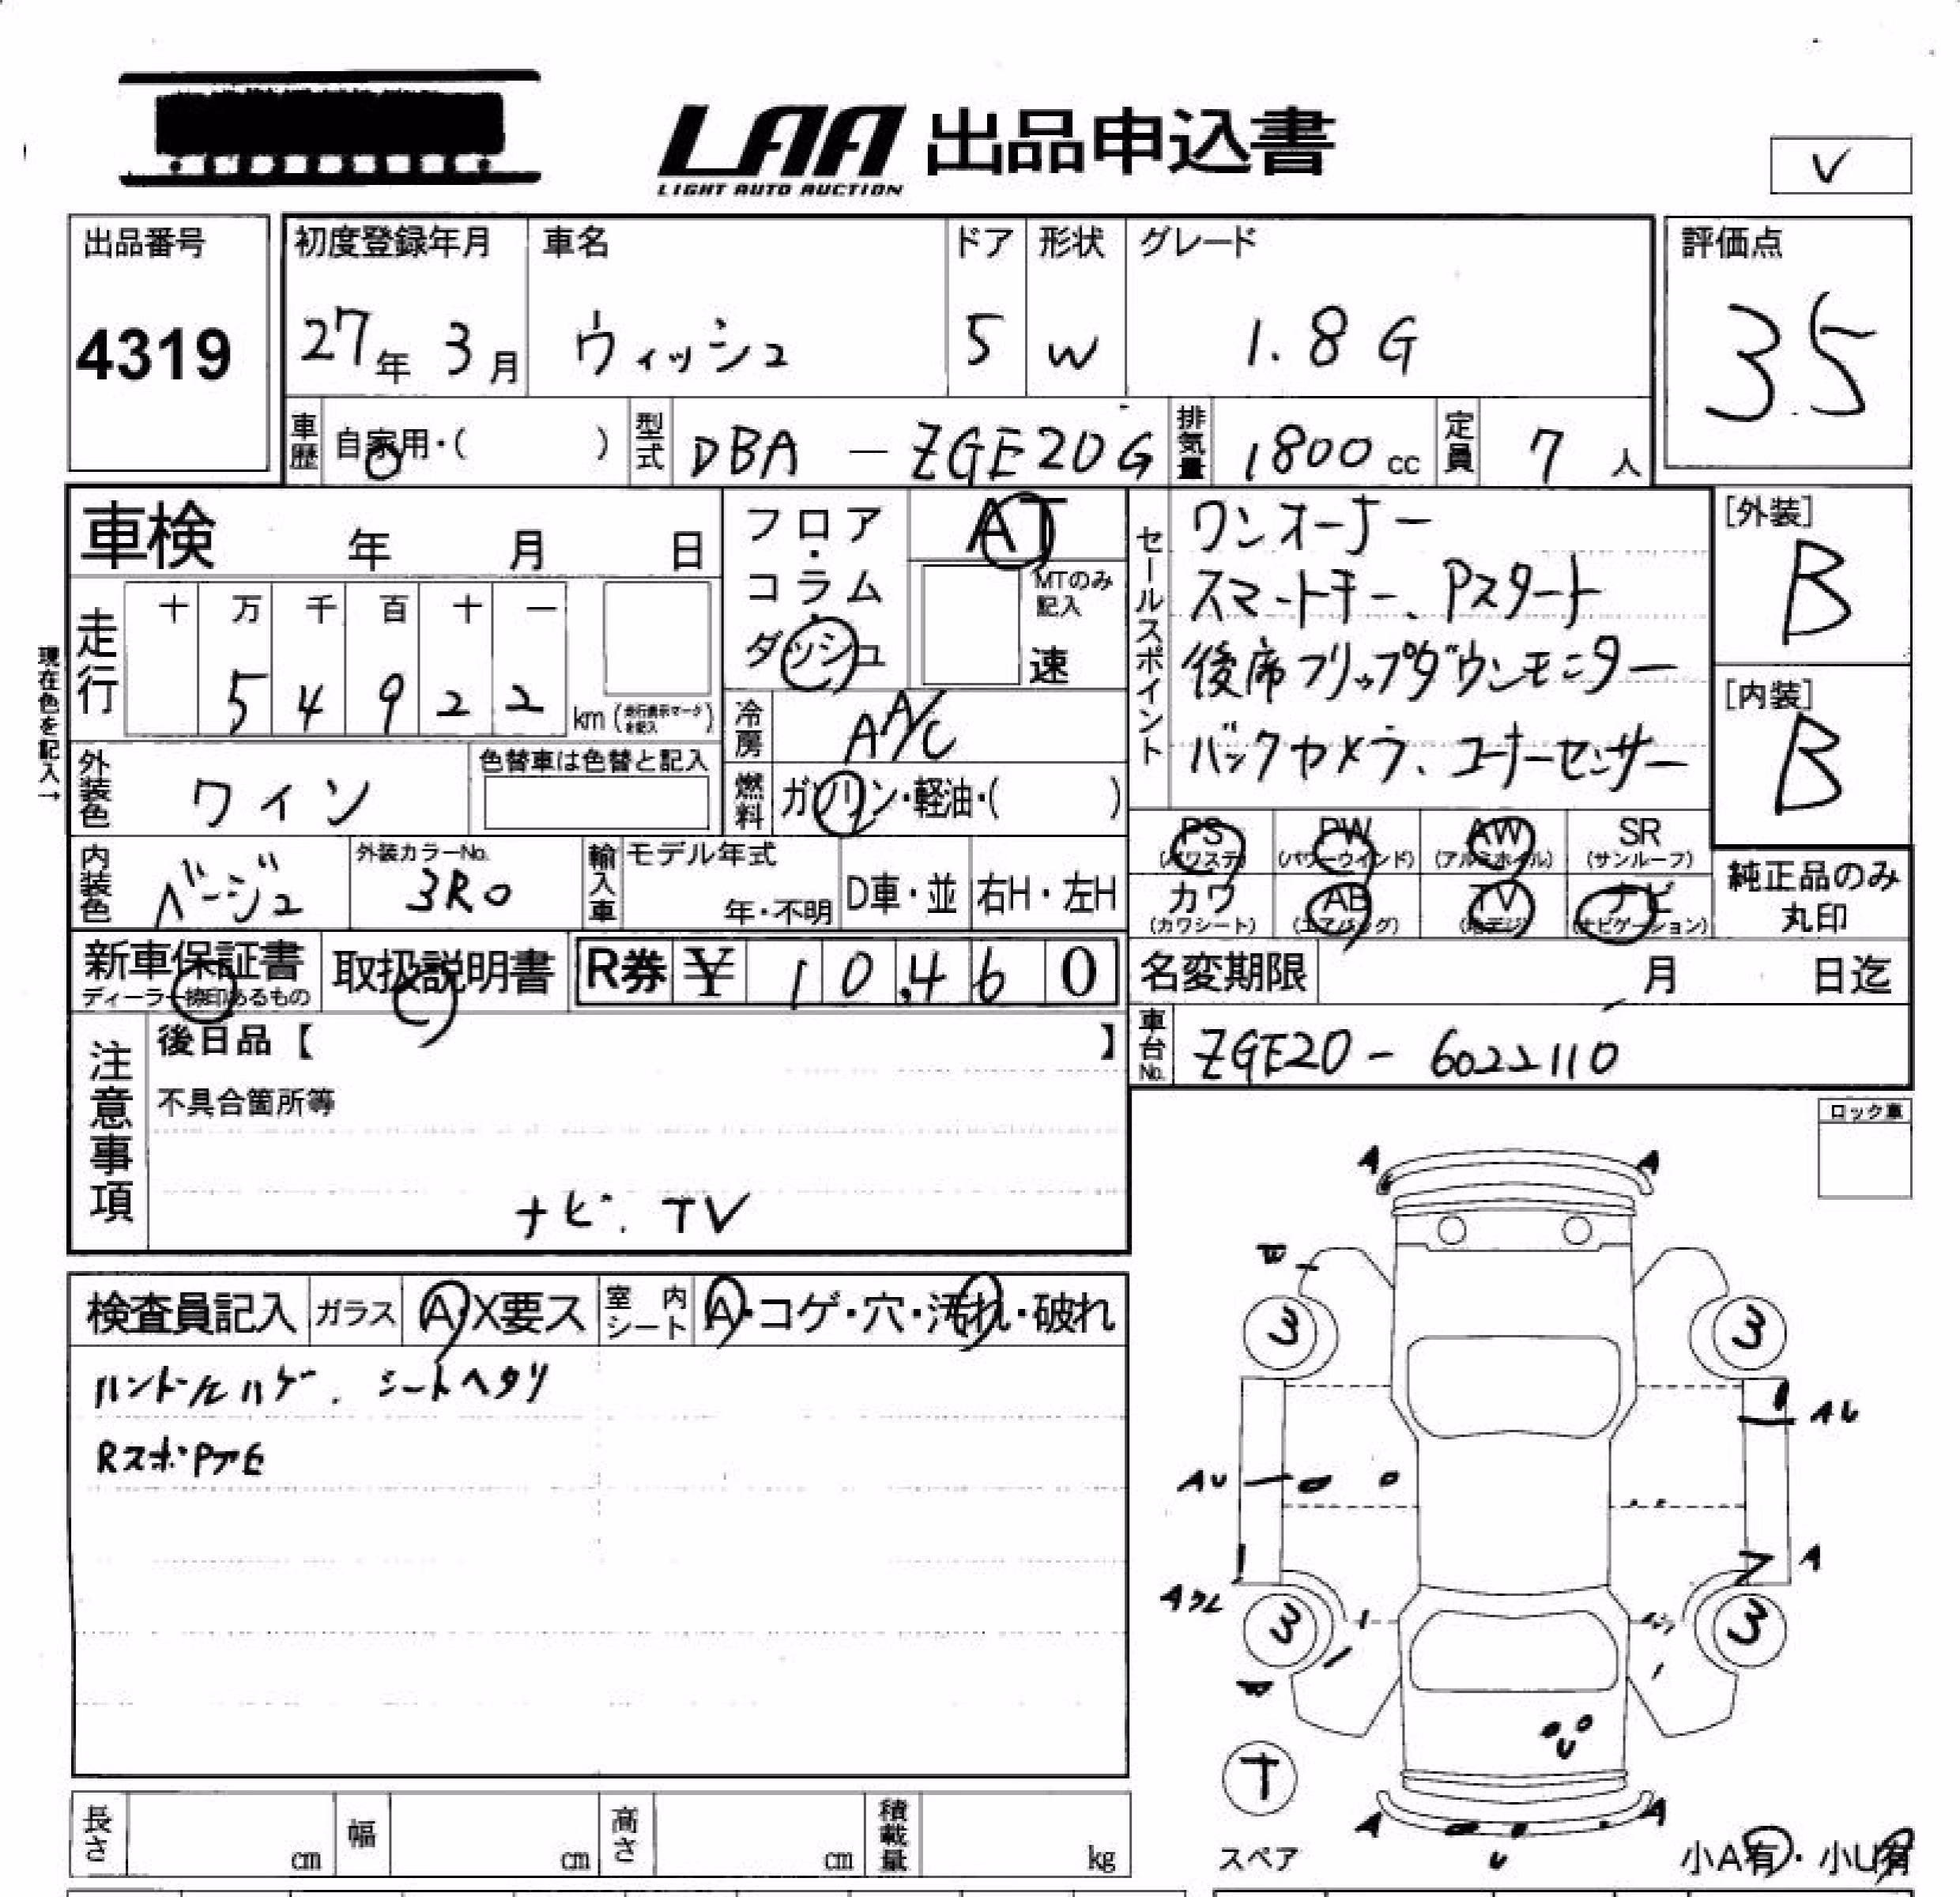 LAA 出品申込書
LIGHT AUTO AUCTION
V
出品番号 初度登録年月 車名 ドア 形状 グレード 評価点
4319 27年 3月 ウィッシュ 5 W 1.8 G 3.5
車歴 自家用・( ) 型式 DBA - ZGE20G 排気量 1800 cc 定員 7 人
車検 年 月 日
フロア・コラム・ダッシュ
AT
MTのみ記入
速
セールスポイント
ワンオーナー
スマートキー、Pスタート
後席フリップダウンモニター
バックカメラ、コーナーセンサー
[外装]
B
[内装]
B
現在色を記入→
走行 十 万 千 百 十 一
5 4 9 2 2 km (走行表示マークを記入)
冷房 AA/C
外装色 ワイン 色替車は色替と記入
燃料 ガソリン・軽油・( )
PS (パワステ) PW (パワーウインド) AW (アルミホイル) SR (サンルーフ)
カワ (カワシート) AB (エアバッグ) TV (地デジ) ナビ (ナビゲーション)
純正品のみ
丸印
内装色 ベージュ 外装カラーNo. 3R0 輸入車 モデル年式 年・不明 D車・並 右H・左H
新車保証書 取扱説明書 R券 ¥ 10,460
ディーラー捺印あるもの
名変期限 月 日迄
注意事項
後日品【 】
車台No. ZGE20 - 6022110
不具合箇所等
ナビ. TV
ロック車
検査員記入 ガラス A・X要ス 室内シート A・コゲ・穴・汚れ・破れ
ハンドルハゲ、シートヘタリ
A A
3 3
AU
AU
A
3 3
T
U
A A
U
スペア
小A有・小U有
長さ cm 幅 cm 高さ cm 積載量 kg